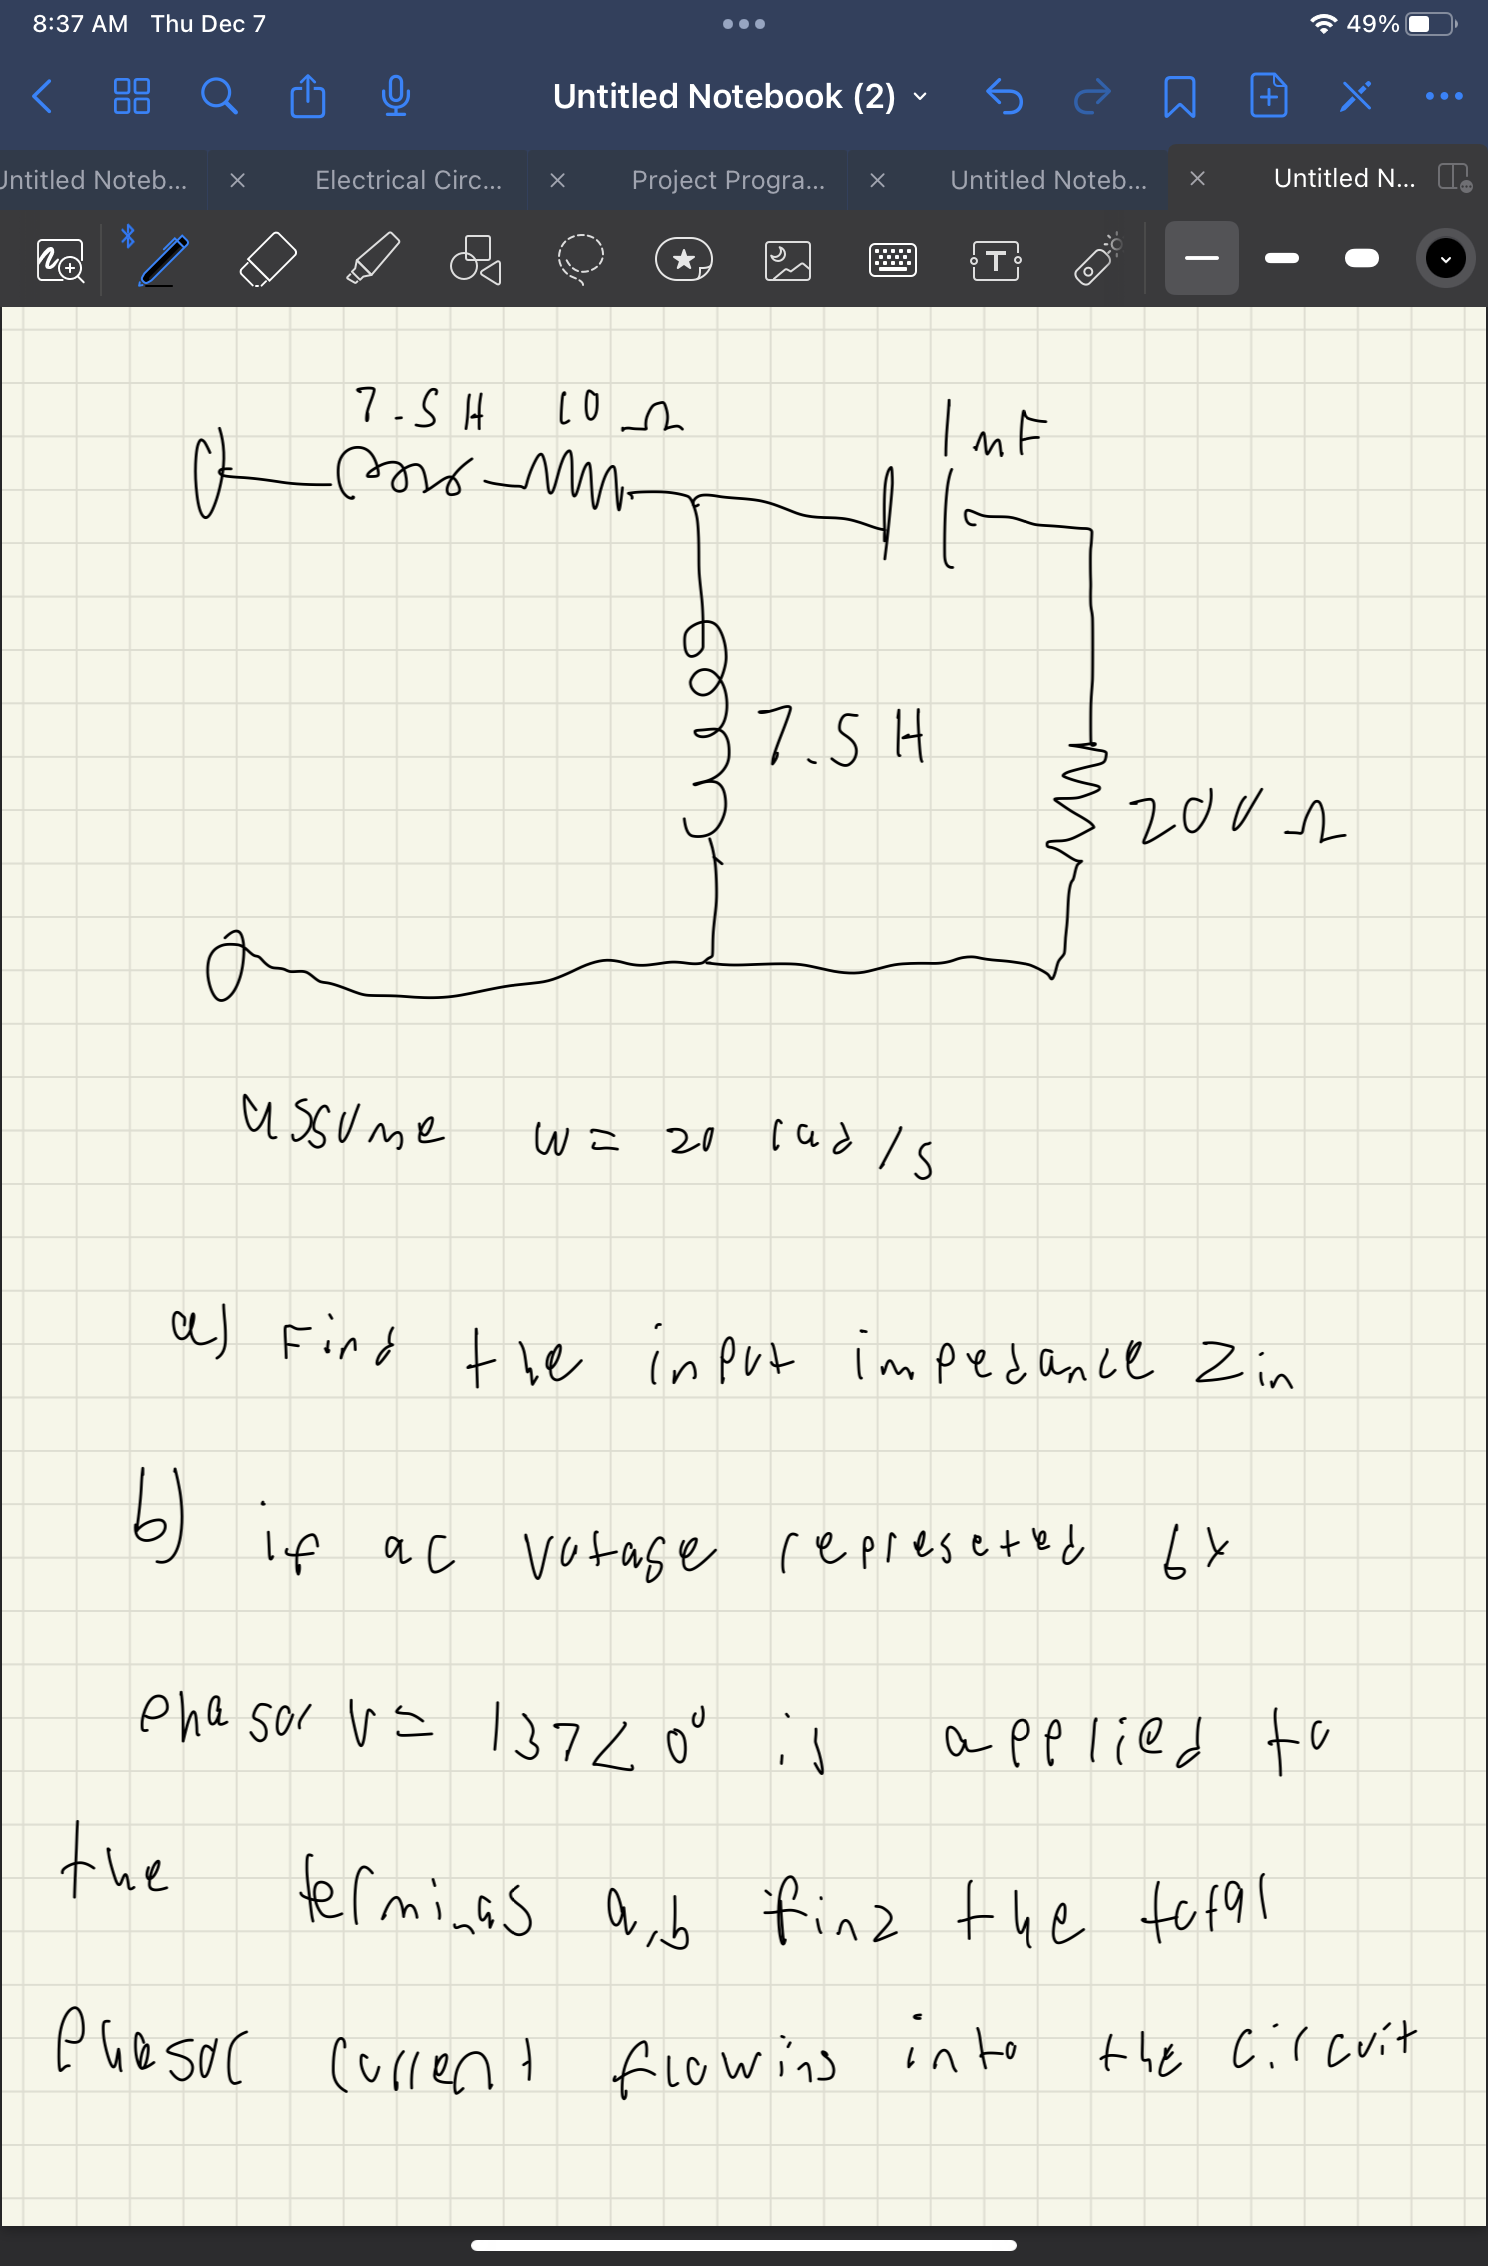 8:37 AM Thu Dec 7
49%
Untitled Notebook (2)
Untitled Noteb...
Electrical Circ...
Project Progra...
Untitled Noteb...
Untitled N...
T
7.5 H 10 Ω
1 mF
7.5 H
200 Ω
assume w = 20 rad/s
a) Find the input impedance Zin
b) if ac votage represeted by
phasor V = 137∠0° is applied to
the terminas a,b find the total
Phasor current flowing into the circuit